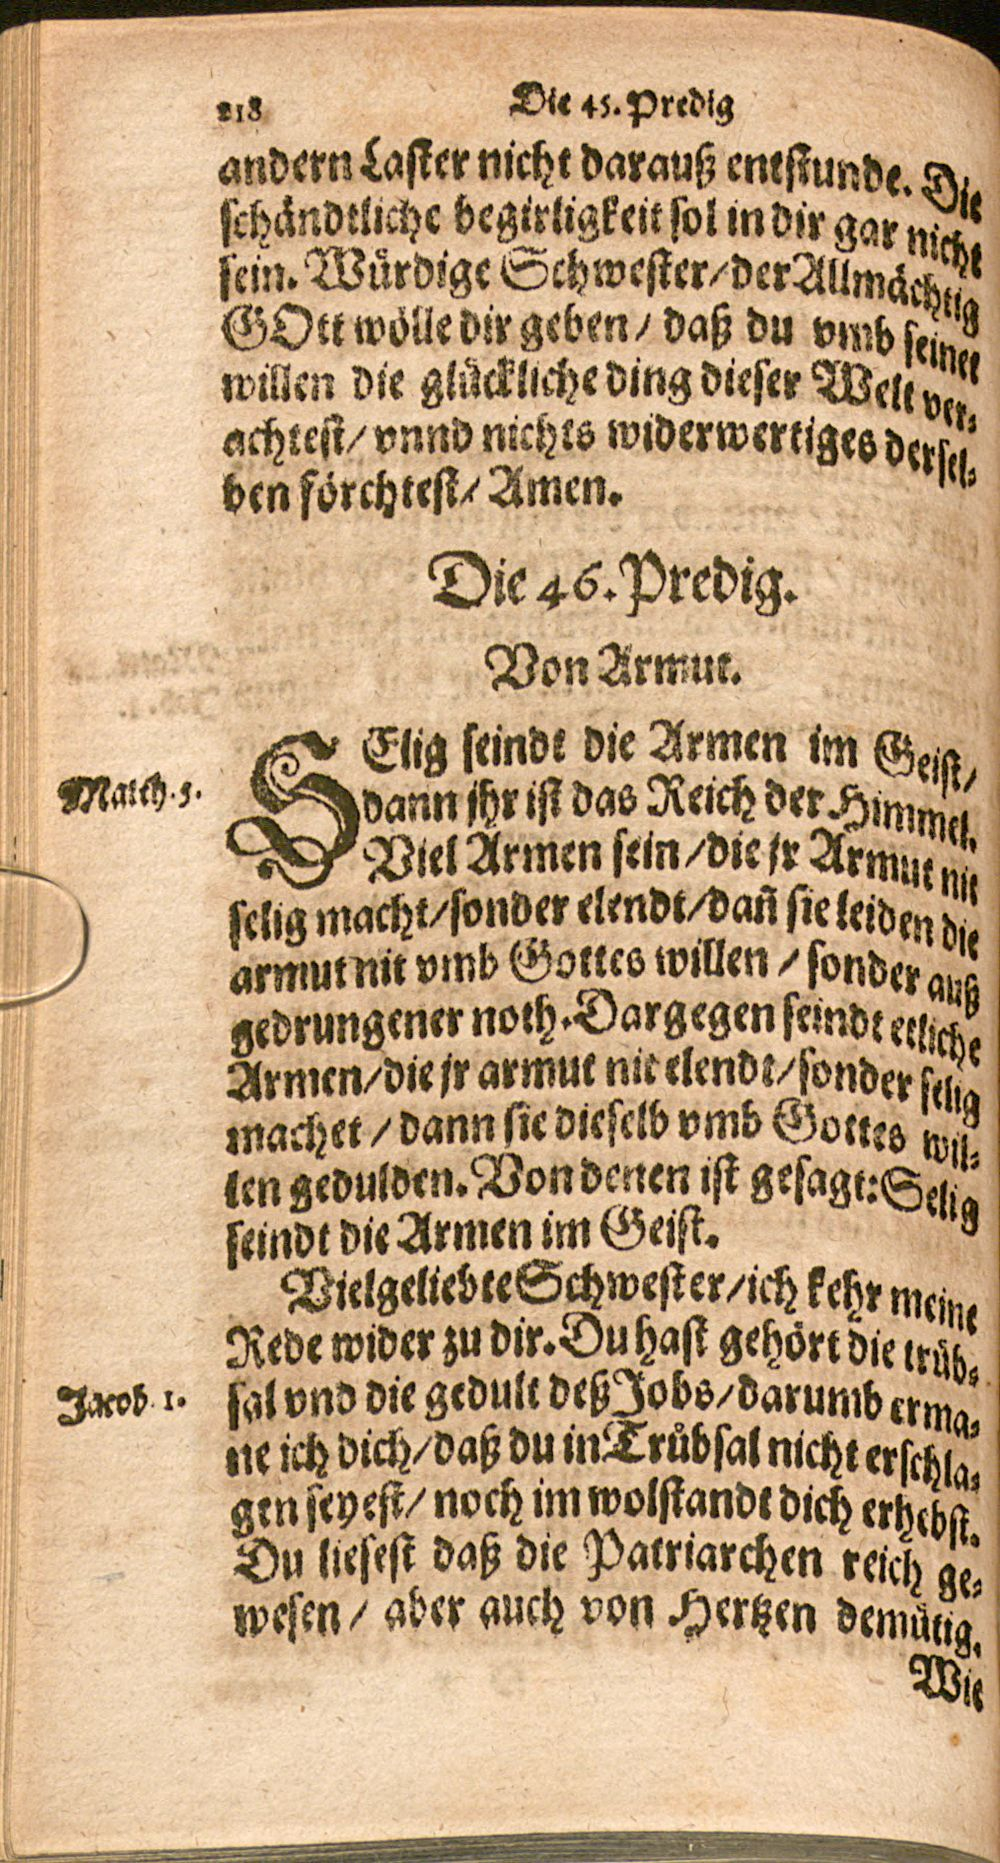 218 Die 45. Predig
andern Laster nicht darauß entstunde. Die
schändtliche begirligkeit sol in dir gar nicht
sein. Würdige Schwester/ der Allmächtig
GOtt wölle dir geben/ daß du vmb seinet
willen die glückliche ding dieser Welt ver-
achtest/ vnnd nichts widerwertiges dersel-
ben förchtest/ Amen.
Die 46. Predig.
Von Armut.
SElig seindt die Armen im Geist/
Matth. 5.
dann jhr ist das Reich der Himmel.
Viel Armen sein/ die jr Armut nit
selig macht/ sonder elendt/ dañ sie leiden die
armut nit vmb Gottes willen/ sonder auß
gedrungener noth. Dargegen seindt etliche
Armen/ die jr armut nit elendt/ sonder selig
machet/ dann sie dieselb vmb Gottes wil-
len gedulden. Von denen ist gesagt: Selig
seindt die Armen im Geist.
Vielgeliebte Schwester/ ich kehr meine
Rede wider zu dir. Du hast gehört die trüb-
Jacob. 1.
sal vnd die gedult deß Jobs/ darumb erma-
ne ich dich/ daß du in Trůbsal nicht erschla-
gen seyest/ noch im wolstandt dich erhebst.
Du liesest daß die Patriarchen reich ge-
wesen/ aber auch von Hertzen demütig.
Wie